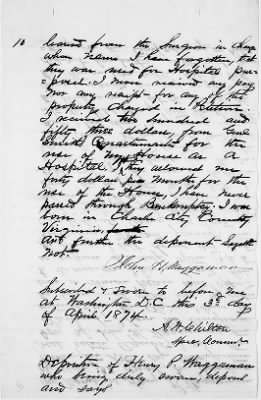 10
learned from the Surgeon in charge
whose name I have forgotten, that
they was used for Hospital pur-
poses. I never received any pay
nor any receipt for any of the
property charged in Petition
I received two hundred and
fifty three dollars, from Genl
Quartermaster for the
use of my House as a
Hospital, they allowed me
forty dollars per month for the
use of the House, I have never
passed through Bankruptcy, I was
born in Charles City County
Virginia,
And further this deponent sayeth
not.
John H. Waggaman
Subscribed & Sworn to before me
at Washington D.C. this 3rd day
of April 1874.
A. W. Chilton
Spec. Commr.
Deposition of Henry P. Waggaman
who being duly sworn, deposes
and says